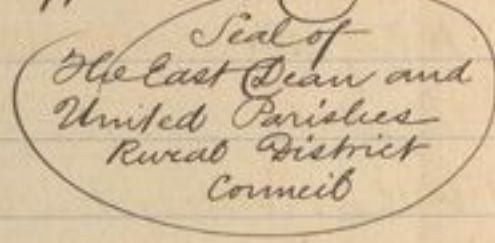 Seal of
The East Dean and
United Parishes
Rural District
Council